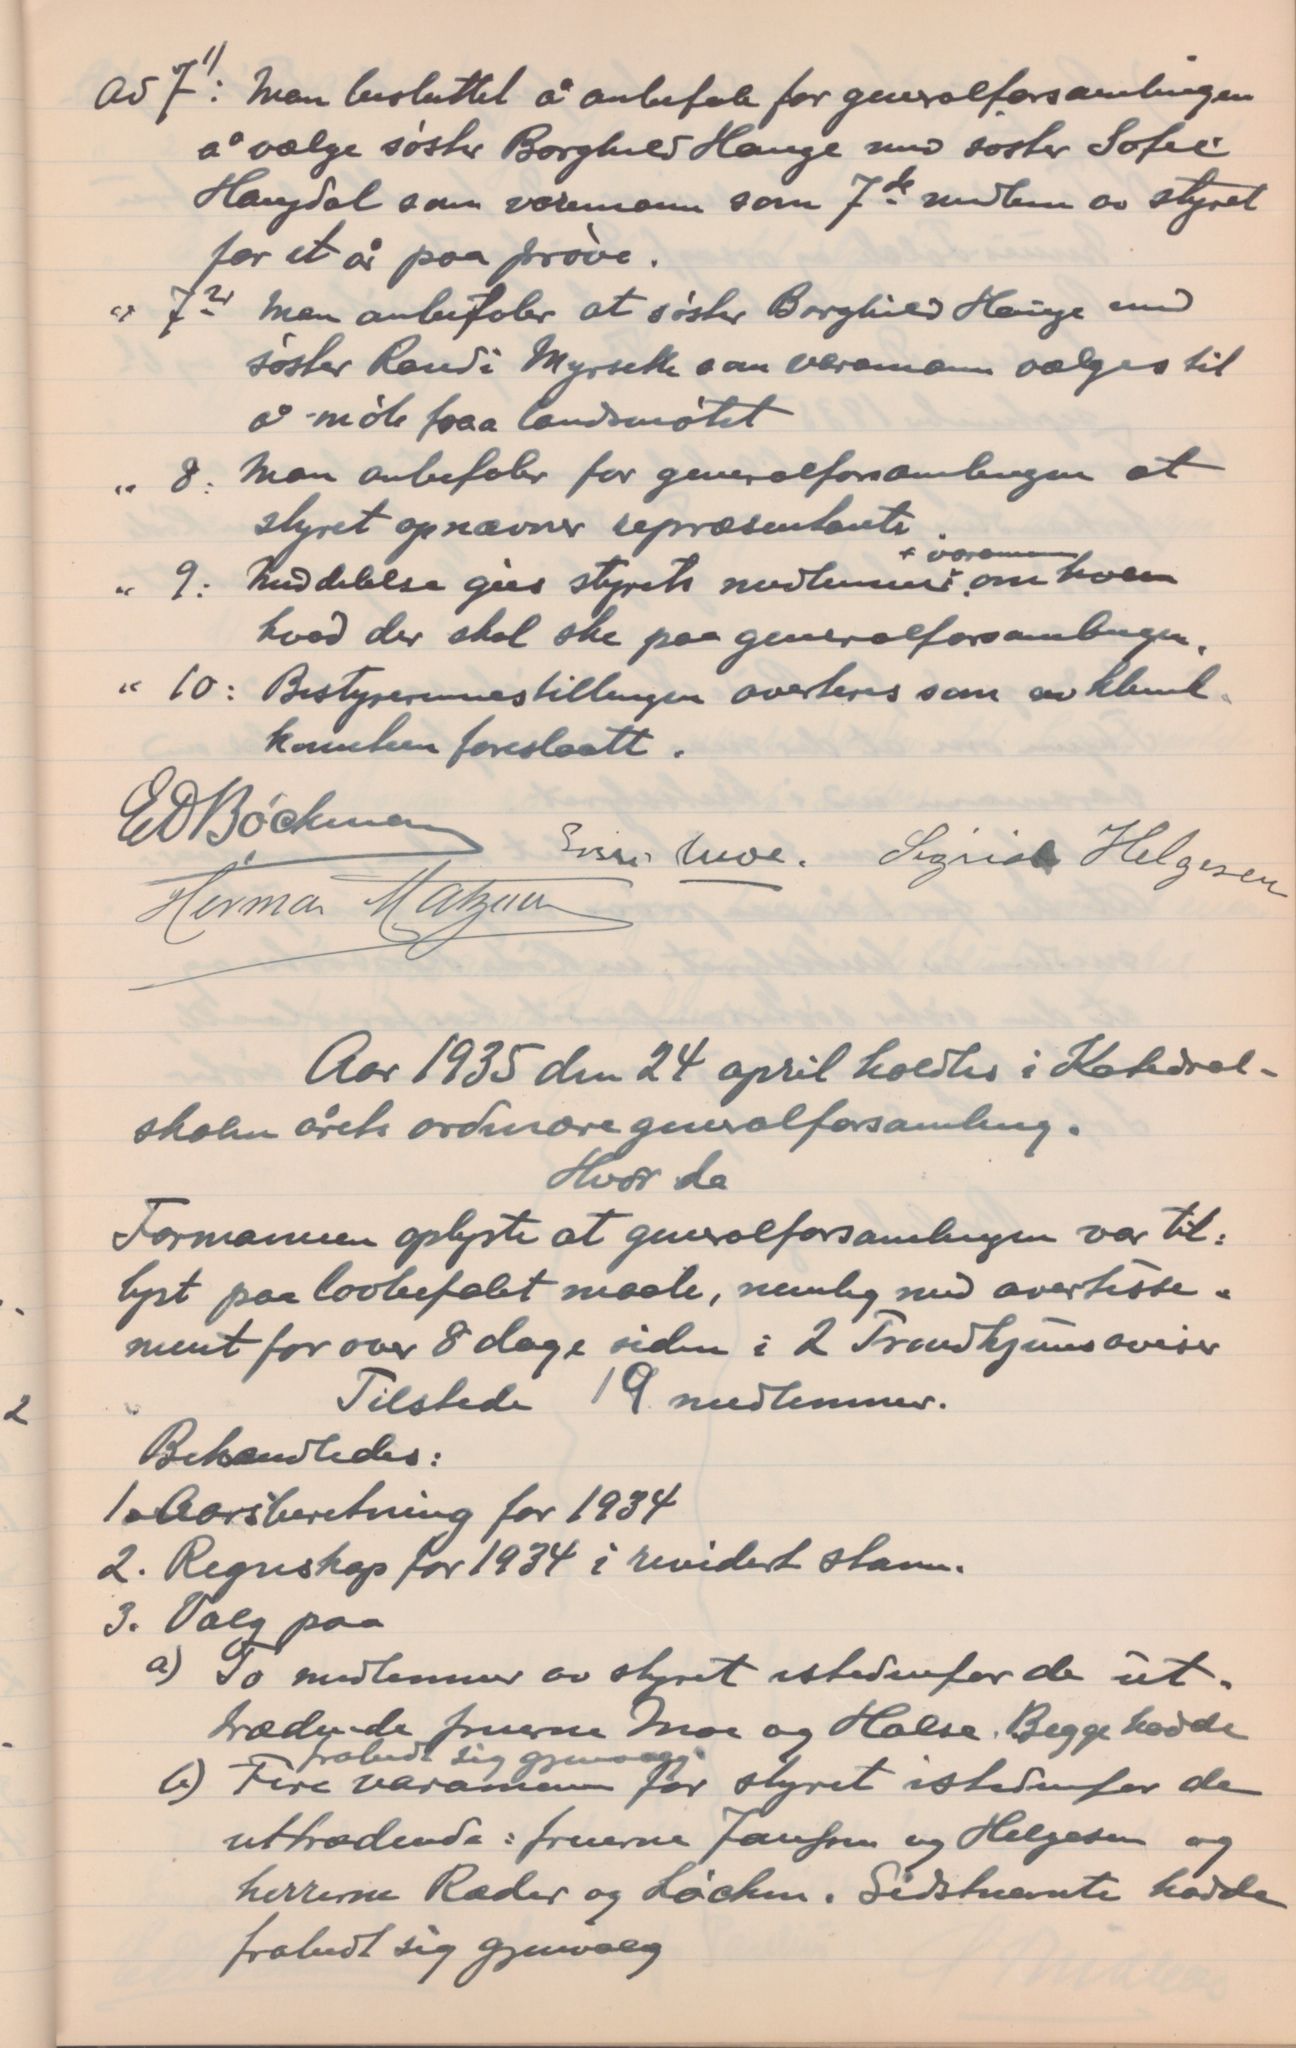 Ad 7¹⁾: Man besluttet å anbefale for generalforsamlingen
å vælge søster Borghild Hauge med søster Sofie
Haugdal som varemann som 7de medlem av styret
for et år paa prøve.
" 7²⁾ Man anbefaler at søster Borghild Hauge med
søster Randi Myrseth som varamann vælges til
å møte paa landsmøtet
" 8: Man anbefaler for generalforsamlingen at
styret opnævner repræsentanter.
" 9: Meddelelse gies styrets medlemmer + varamenn om
hvad der skal ske paa generalforsamlingen.
" 10: Bestyrerinnestillingen averteres som av
komiteen foreslaatt.
E D Bøckman
Moe. Sigrid Helgesen
Herman Matzen
Aar 1935 den 24 april holdtes i Katedral-
skolen årets ordinære generalforsamling.
Hvor da
Formannen oplyste at generalforsamlingen var til:
lyst paa lovbefalet maate, nemlig med avertisse-
ment for over 8 dage siden i 2 Trondhjemsaviser
Tilstede 19 medlemmer.
Behandledes:
1. Aarsberetning for 1934
2. Regnskap for 1934 i revidert stann.
3. Valg paa
a) To medlemmer av styret istedenfor de ut-
trædende fruerne Moe og Halse. Begge hadde
frabedt sig gjenvalg.
b) Fire varamenn for styret istedenfor de
uttrædende: fruerne Janssen og Helgesen og
herrerne Ræder og Løchen. Sidstnevnte hadde
frabedt sig gjenvalg
2